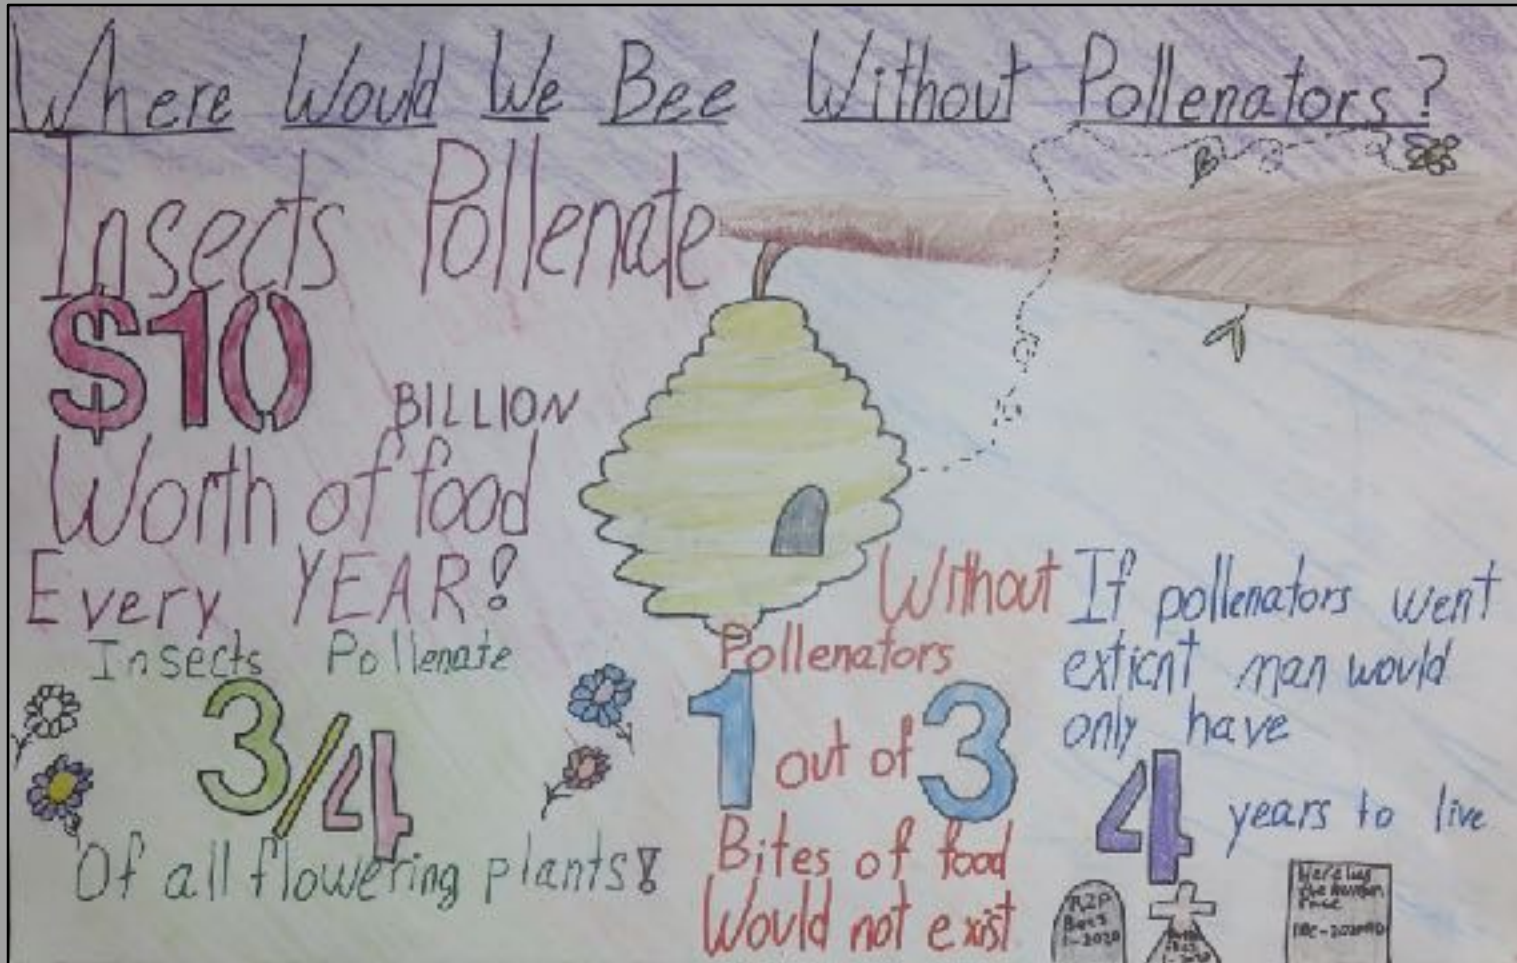 Where Would We Bee Without Pollenators?
Insects Pollenate
$10 BILLION
Worth of food
Every YEAR!
Insects Pollenate
3/4
Of all flowering plants!
Without
Pollenators
1 out of 3
Bites of food
Would not exist
If pollenators went
exticnt man would
only have
4 years to live
RIP
Bees
1-2020
1-2020
Here lies
the human
Race